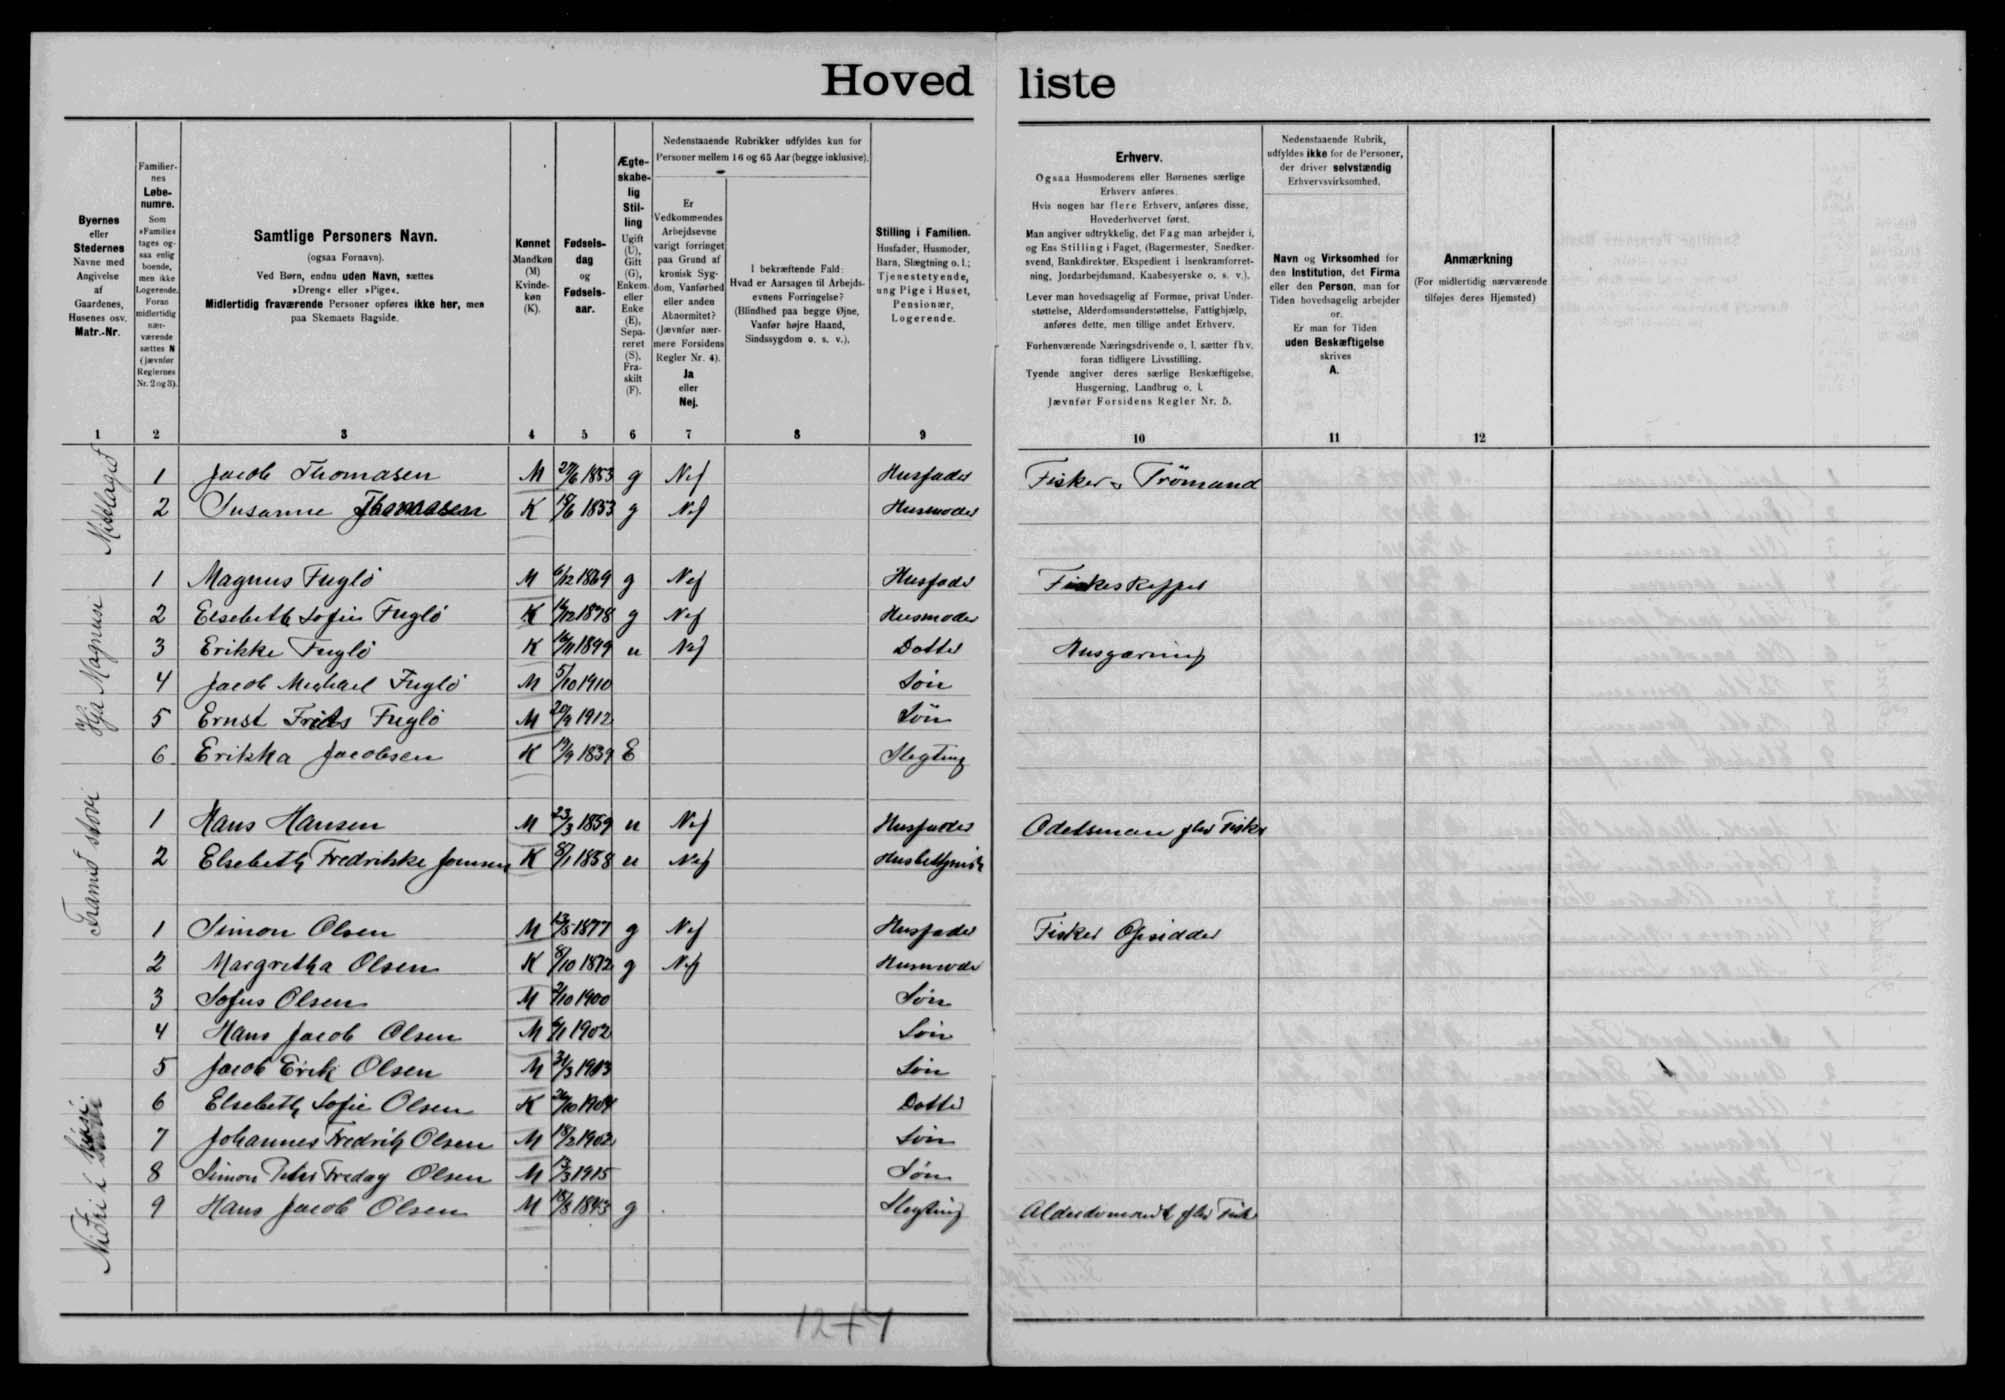 Hoved liste
Byernes
eller
Stedernes
Navne med
Angivelse
af
Gaardenes,
Husenes osv.
Matr.-Nr.
Familier-
nes
Løbe-
numre.
Som
»Familie«
tages og-
saa enlig
boende,
men ikke
Logerende.
Foran
midlertidig
nær-
værende
sættes N
(jævnfør
Reglernes
Nr. 2 og 3).
Samtlige Personers Navn.
(ogsaa Fornavn).
Ved Børn, endnu uden Navn, sættes
»Dreng« eller »Pige«.
Midlertidig fraværende Personer opføres ikke her, men
paa Skemaets Bagside.
Kønnet
Mandkøn
(M)
Kvinde-
køn
(K).
Fødsels-
dag
og
Fødsels-
aar.
Ægte-
skabe-
lig
Stil-
ling
Ugift
(U),
Gift
(G),
Enkem.
eller
Enke
(E),
Sepa-
reret
(S),
Fra-
skilt
(F).
Nedenstaaende Rubrikker udfyldes kun for
Personer mellem 16 og 65 Aar (begge inklusive).
Er
Vedkommendes
Arbejdsevne
varigt forringet
paa Grund af
kronisk Syg-
dom, Vanførhed
eller anden
Abnormitet?
(Jævnfør nær-
mere Forsidens
Regler Nr. 4).
Ja
eller
Nej.
I bekræftende Fald:
Hvad er Aarsagen til Arbejds-
evnens Forringelse?
(Blindhed paa begge Øjne,
Vanfør højre Haand,
Sindssygdom o. s. v.).
Stilling i Familien.
Husfader, Husmoder,
Barn, Slægtning o. l.;
Tjenestetyende,
ung Pige i Huset,
Pensionær,
Logerende.
Erhverv.
Ogsaa Husmoderens eller Børnenes særlige
Erhverv anføres.
Hvis nogen har flere Erhverv, anføres disse,
Hovederhvervet først.
Man angiver udtrykkelig, det Fag man arbejder i,
og Ens Stilling i Faget, (Bagermester, Snedker-
svend, Bankdirektør, Ekspedient i Isenkramforret-
ning, Jordarbejdsmand, Kaabesyerske o. s. v.).
Lever man hovedsagelig af Formue, privat Under-
støttelse, Alderdomsunderstøttelse, Fattighjælp,
anføres dette, men tillige andet Erhverv.
Forhenværende Næringsdrivende o. l. sætter fhv.
foran tidligere Livsstilling.
Tyende angiver deres særlige Beskæftigelse,
Husgerning, Landbrug o. l.
Jævnfør Forsidens Regler Nr. 5.
Nedenstaaende Rubrik,
udfyldes ikke for de Personer,
der driver selvstændig
Erhvervsvirksomhed.
Navn og Virksomhed for
den Institution, det Firma
eller den Person, man for
Tiden hovedsagelig arbejder
for.
Er man for Tiden
uden Beskæftigelse
skrives
A.
Anmærkning
(For midlertidig nærværende
tilføjes deres Hjemsted)
1 2 3 4 5 6 7 8 9 10 11 12
1 Jacob Thomasen M 27/6 1853 g Nej Husfader Fisker Trömand
2 Susanne Thomasen K 19/6 1853 g Nej Husmoder
Hja Magnusi
1 Magnus Fuglö M 6/12 1869 g Nej Husfader Fiskeskipper
2 Elsebeth Sofie Fuglö K 14/12 1878 g Nej Husmoder
3 Erikke Fuglö K 1899 u Nej Datter Husgærning
4 Jacob Michael Fuglö M 5/10 1910 Sön
5 Ernst Frits Fuglö M 20/9 1912 Sön
6 Erikka Jacobsen K 19/9 1839 E Slegting
1 Hans Hansen M 23/3 1859 u Nej Husfader Odelsman fhv Fisker
2 Elsebeth Fredrikke Joensen K 8/1 1858 u Nej Husbestyrer
1 Simon Olsen M 13/5 1877 g Nej Husfader Fisker Opsidder
2 Margretha Olsen K 8/10 1872 g Nej Husmoder
3 Sofus Olsen M 2/10 1900 Sön
4 Hans Jacob Olsen M 1902 Sön
5 Jacob Erik Olsen M Sön
6 Elsebeth Sofie Olsen K Datter
7 Johannes Fredrik Olsen M Sön
8 Simon Peter Freday Olsen M 1915 Sön
9 Hans Jacob Olsen M 18/8 1843 g Slegting fhv Fisker
12+7